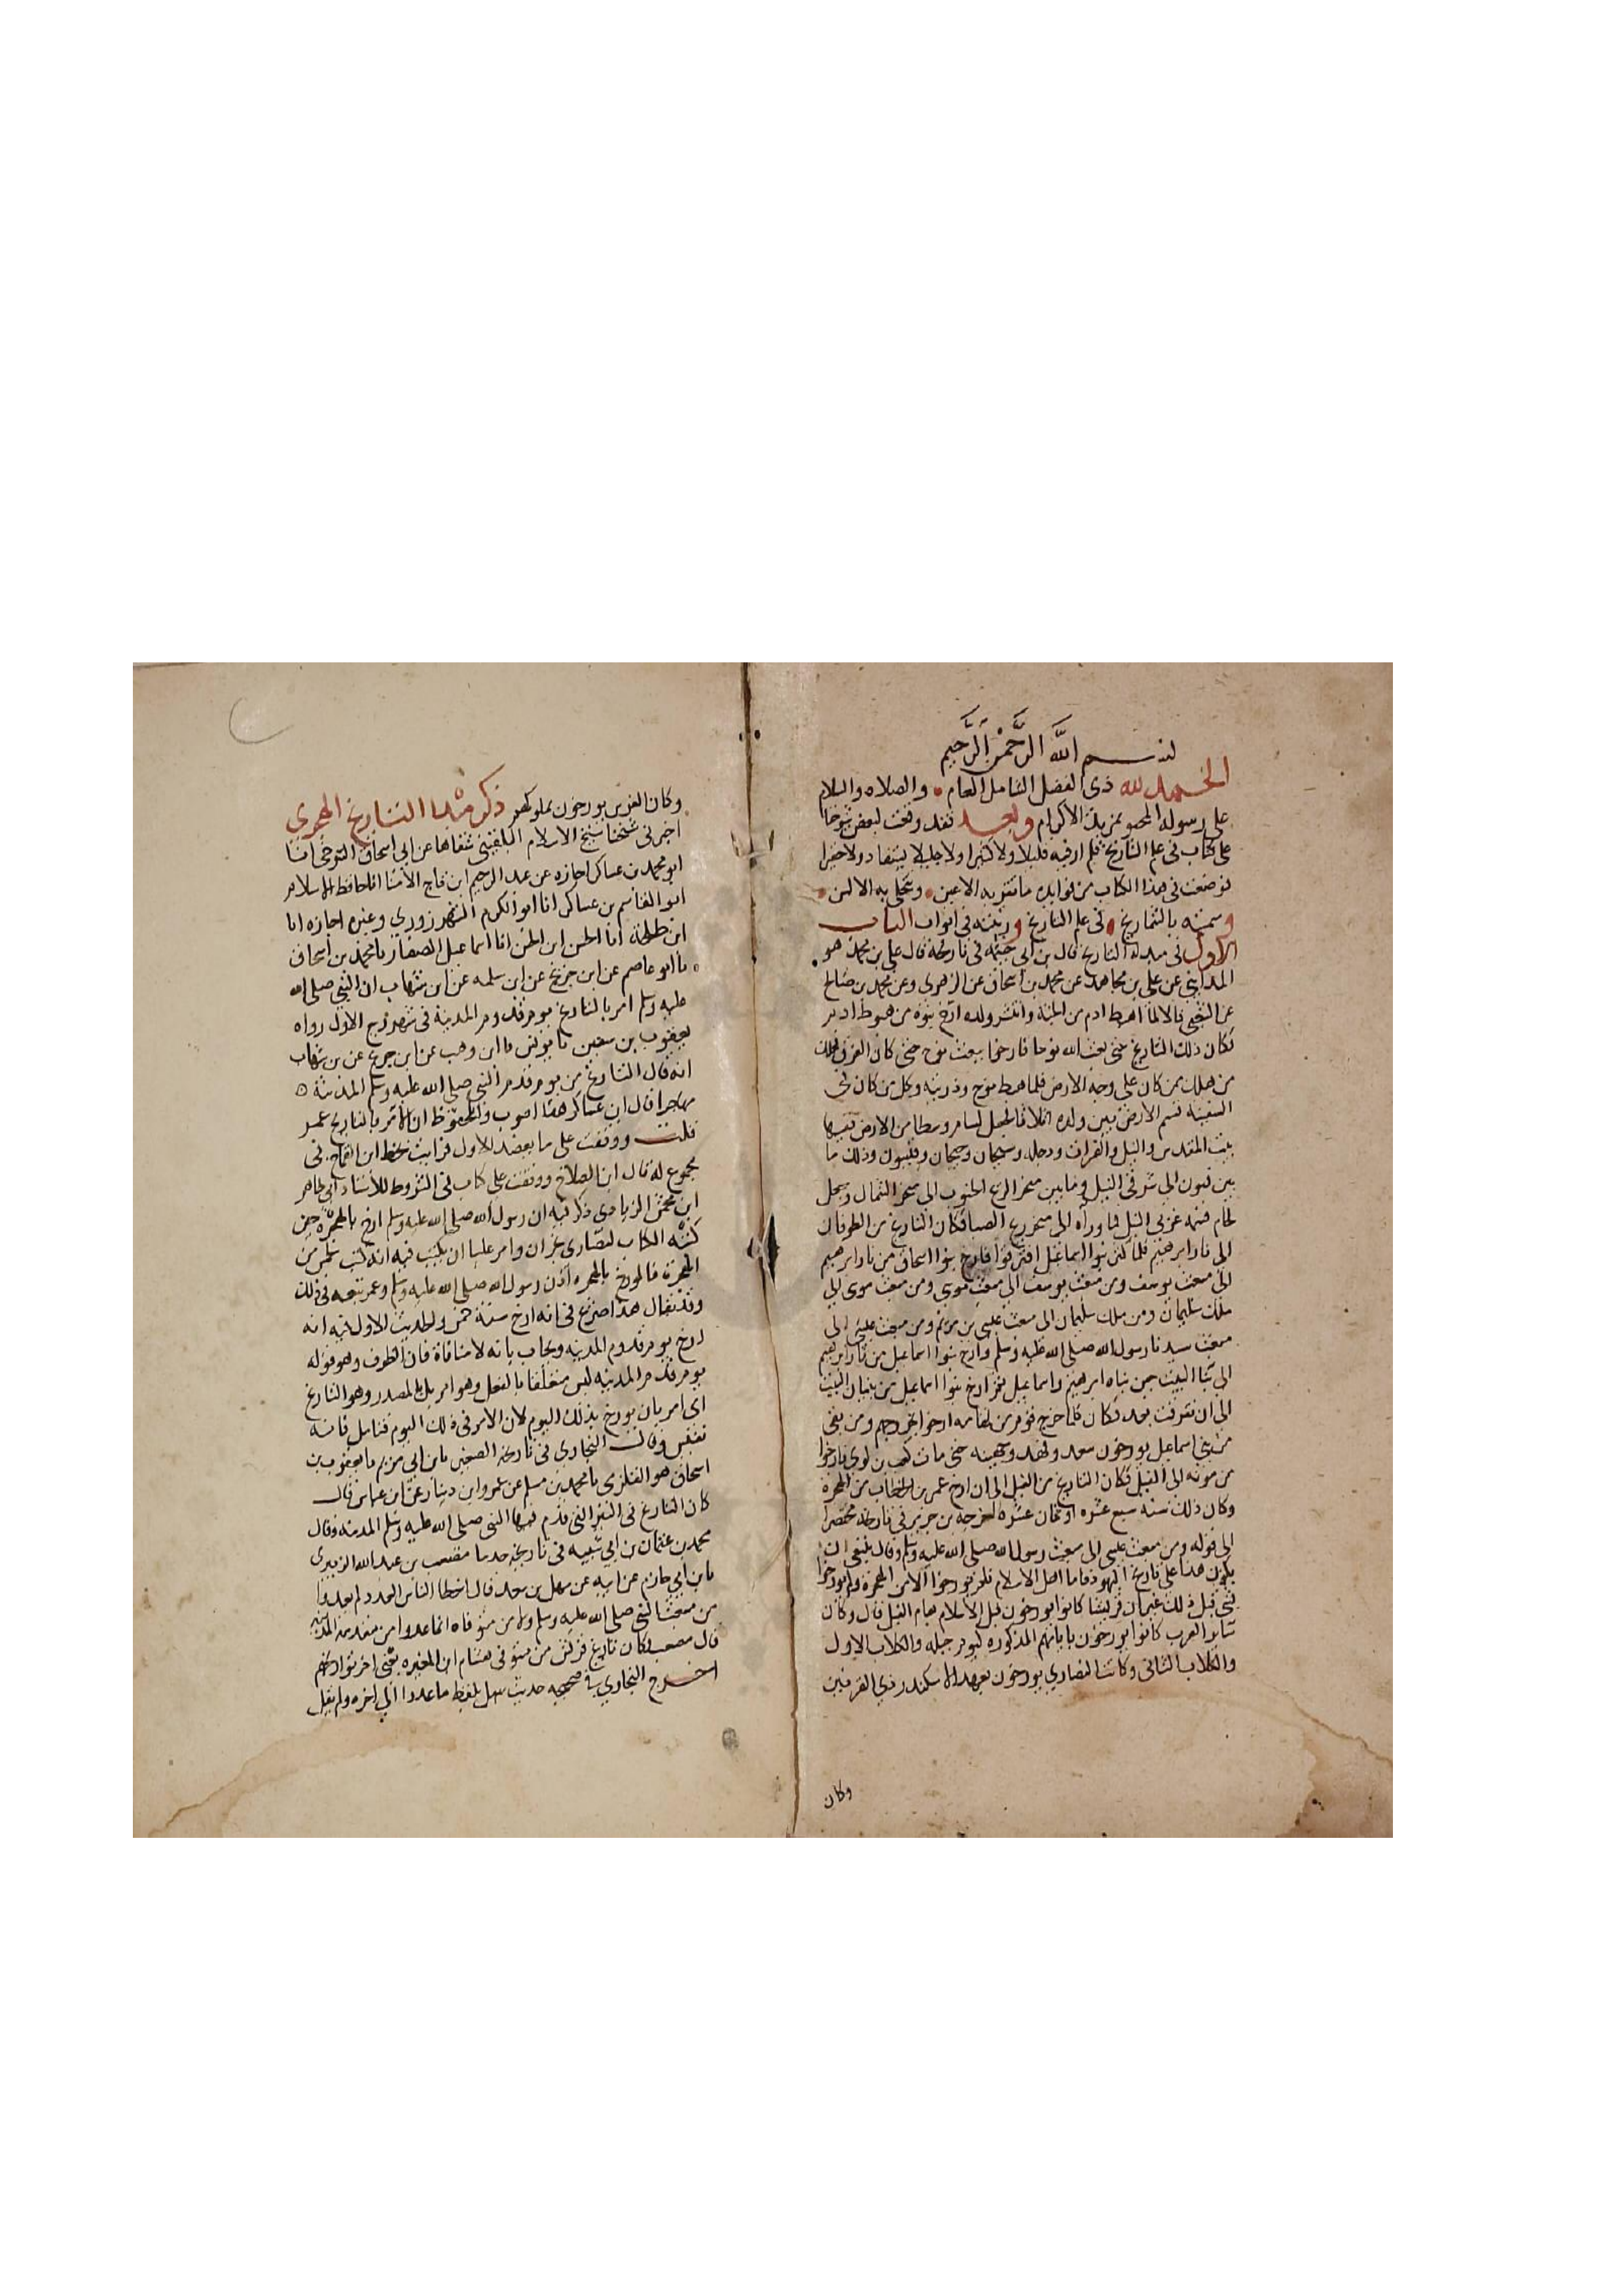 بسم الله الرحمن الرحيم
الحمد لله ذي الفضل الشامل العام والصلاه والسلام
على رسوله المخصوص بمزيد الاكرام وبعد فقد وقفت لبعض شيوخنا
على كتاب في علم التاريخ فلم ار فيه قليلا ولا كثيرا ولا جليلا يستفاد ولا حقيرا
فوضعت في هذا الكتاب من فوايده ما تقر به الاعين وتتحلى به الالسن
وسميته بالشماريخ في علم التاريخ ورتبته في ابواب الباب
الاول في مبدا التاريخ قال بن ابي خيثمه في تاريخه قال علي بن محمد هو
المدايني عن علي بن مجاهد عن محمد بن اسحاق عن الزهري وعن محمد بن صالح
عن الشعبي قالا لما اهبط ادم من الجنة وانتشر ولده ارخ بنوه من هبوط ادم
فكان ذلك التاريخ حتى بعث الله نوحا فارخوا ببعث نوح حتى كان الغرق فهلك
من هلك ممن كان على وجه الارض فلما هبط نوح وذريته وكل من كان في
السفينة قسم الارض بين ولده اثلاثا فجعل لسام وسطا من الارض ففيها
بيت المقدس والنيل والفرات ودجله وسيحان وجيحان وفيشون وذلك ما
بين فيشون الى شرقي النيل وما بين منخر الريح الجنوب الى منخر الشمال وجعل
لحام قسمه غربي النيل فما وراه الى منخر ريح الصبا فكان التاريخ من الطوفان
الى نار ابرهيم فلما كثر بنوا اسماعيل افترقوا فارخ بنوا اسحاق من نار ابرهيم
الى مبعث يوسف ومن مبعث يوسف الى مبعث موسى ومن مبعث موسى الى
ملك سليمان ومن ملك سليمان الى مبعث عيسى بن مريم ومن مبعث عيسى الى
مبعث سيدنا رسول الله صلى الله عليه وسلم وارخ بنوا اسماعيل من نار ابرهيم
الى بنا البيت حين بناه ابرهيم واسماعيل ثم ارخ بنوا اسماعيل من بنيان البيت
الى ان تفرقت معد فكان كلما خرج قوم من تهامه ارخوا بخروجهم ومن بقي
من بني اسماعيل يورخون سعد ونهد وجهينه حتى مات كعب بن لوي فارخوا
من موته الى الفيل فكان التاريخ من الفيل الى ان ارخ عمر بن الخطاب من الهجرة
وكان ذلك سنه سبع عشره او ثمان عشره اخرجه بن جرير في تاريخه مختصرا
الى قوله ومن مبعث عيسى الى مبعث رسول الله صلى الله عليه وسلم وقال ينبغي ان
يكون هذا على تاريخ اليهود فاما اهل الاسلام فلم يورخوا الا من الهجرة ولم يورخوا
بشي قبل ذلك غير ان قريشا كانوا يورخون قبل الاسلام بعام الفيل قال وكان
ساير العرب كانوا يورخون باياهم المذكوره ليوم جبله والكلاب الاول
والكلاب الثاني وكانت النصارى يورخون بعهد الاسكندر ذي القرنين
وكان
وكان الفرس يورخون بملوكهم ذكر مبدا التاريخ الهجري
اخبرني شيخنا شيخ الاسلام البلقيني شفاها عن ابي اسحاق التنوخي انبا
ابو محمد بن عساكر اجازه عن عبد الرحيم ابن تاج الامنا انا حافظ الاسلام
ابو القاسم بن عساكر انا ابو الكرم الشهرزوري وغيره اجازه انا
ابن طلحة انا الحسن ابن الحسن انا اسماعيل الصفار نا محمد بن اسحاق
نا ابو عاصم عن ابن جريج عن ابن سلمه عن ابن شهاب ان النبي صلى الله
عليه وسلم امر بالتاريخ يوم قدوم المدينة في شهر ربيع الاول رواه
يعقوب بن سفين نا يونس نا ابن وهب عن ابن جريج عن بن شهاب
انه قال التاريخ من يوم قدم النبي صلى الله عليه وسلم المدينة
مهاجرا قال ابن عساكر هذا اصوب والمحفوظ ان الامر بالتاريخ عمر
قلت ووقفت على ما يعضد الاول فرايت بخط ابن القماح في
مجموع له قال ابن الصلاح ووقفت على كتاب في الشروط للاستاذ ابي طاهر
ابن محمش الزيادي ذكر فيه ان رسول الله صلى الله عليه وسلم ارخ بالهجرة حين
كتب الكتاب لنصارى نجران وامر عليا ان يكتب فيه انه كتب لخمس من
الهجرة فالمورخ بالهجره اذن رسول الله صلى الله عليه وسلم وعمر تبعه في ذلك
وقد يقال هذا صريح في انه ارخ سنة خمس والحديث الاول فيه انه
ارخ يوم قدوم المدينه ويجاب بانه لا منافاة فان الظرف وهو قوله
يوم قدم المدينه ليس متعلقا بالفعل وهو امر بل بالمصدر وهو التاريخ
اي امر بان يورخ بذلك اليوم لان الامر في ذلك اليوم فتامل فانه
نفيس وقال البخاري في تاريخه الصغير نا بن ابي مريم نا يعقوب بن
اسحاق هو القلزي نا محمد بن مسلم عن عمرو ابن دينار عن ابن عباس قال
كان التاريخ في السنة التي قدم فيها النبي صلى الله عليه وسلم المدينه وقال
محمد بن عثمان بن ابي شيبه في تاريخه حدثنا مصعب بن عبد الله الزبيري
نا بن ابي حازم عن ابيه عن سهل بن سعد قال اخطا الناس العدد لم يعدوا
من مبعث النبي صلى الله عليه وسلم ولا من متوفاه انما عدوا من مقدمه المدينه
قال مصعب وكان تاريخ قريش من متوفى هشام ابن المغيره يعني اخر تواريخهم
اخرج البخاري في صحيحه حديث سهل بلفظ ما عدوا الى اخره ولم يقل